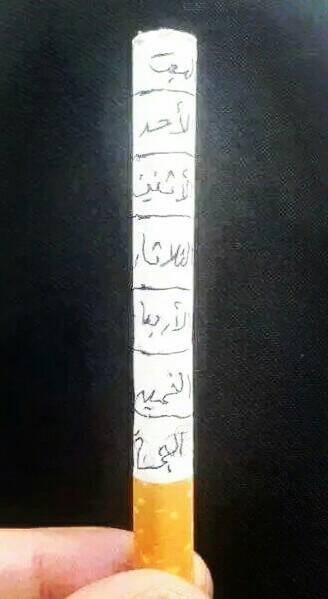 السبت
الأحد
الأثنين
الثلاثاء
الأربعا
الخميس
الجمعة